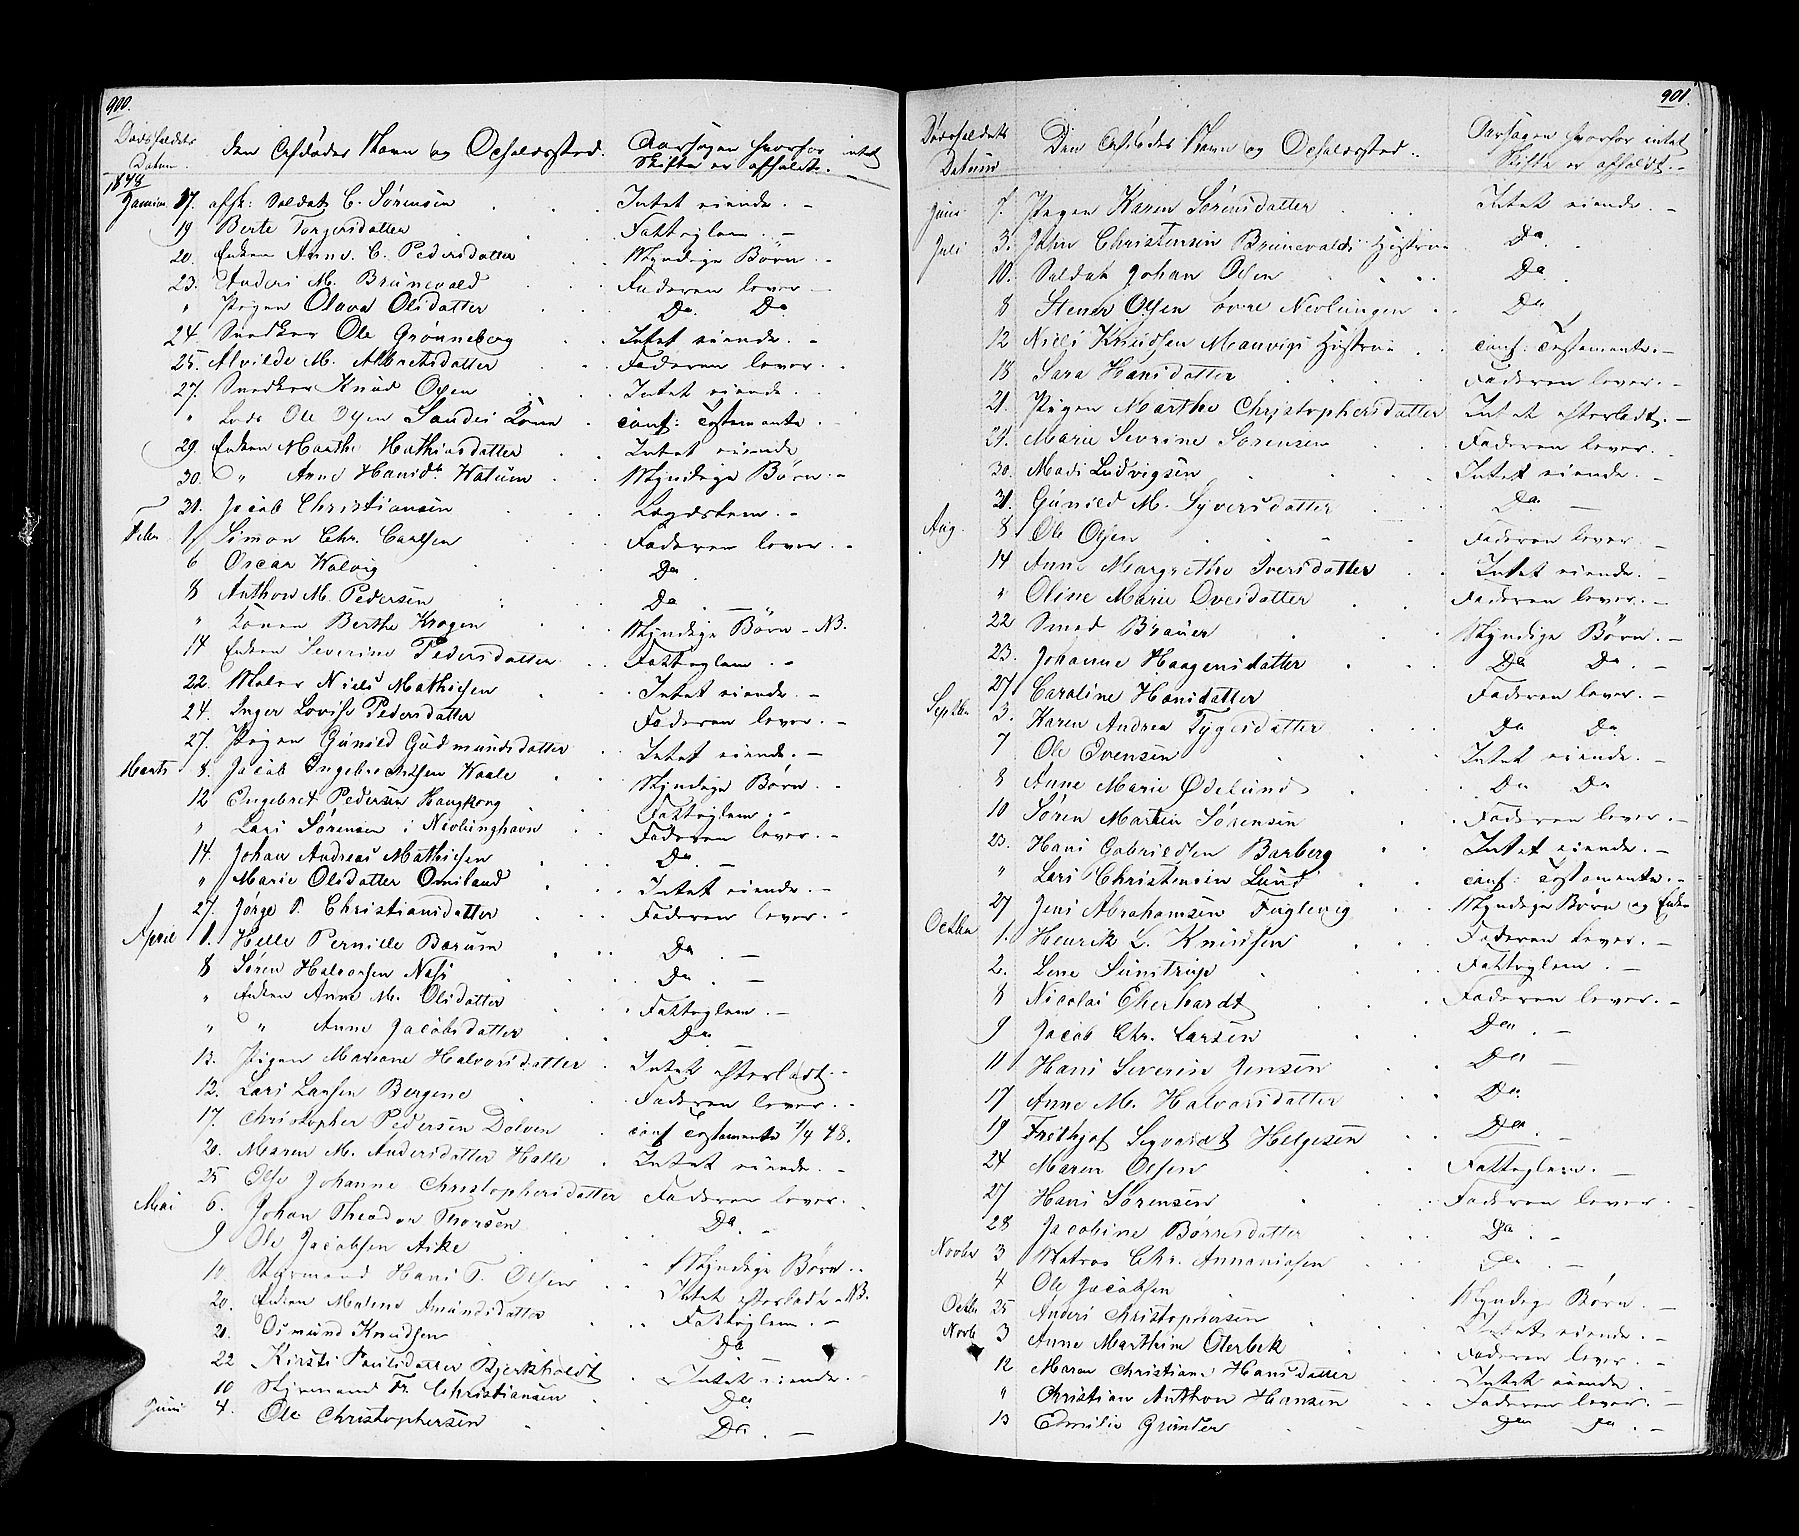 900.
Dødsfaldets Datum
den Afdødes Navn og Opholdssted.
Aarsagen hvorfor intet Skifte er afholdt.
1848
Januar 17. afsk: Soldat C. Sørensen Intet eiende. -
19 Berte Torgersdatter Fattiglem. -
20. Enken Anne C. Pedersdatter Myndige Børn. -
23. Anders M. Brunevald Faderen lever -
" Pigen Olava Olsdatter Do Do
24. Snedker Ole Grønneberg Intet eiende. -
25. Alvilde M. Albretsdatter Faderen lever. -
27. Snedker Knud Olsen Intet eiende.
" Lods Ole Olsen Sandes Kone conf: Testamente.
29. Enken Marthe Mathiasdatter Intet eiende
30. " Anne Hansdtr. Holum Myndige Børn. -
31. Jacob Christiansen Lægdslem. -
Febr. 1 Simon Chr. Carlsen Faderen lever. -
6 Oscar Walvig Do
8 Anthon M. Pedersen Do. -
" Konen Berthe Krogen Myndige Børn - NB.
14 Enken Severine Pedersdatter Fattiglem. -
22. Maler Niels Mathisen Intet eiende. -
24. Inger Lovise Pedersdatter Faderen lever. -
27. Pigen Gunild Gudmundsdatter Intet eiende. -
Marts 8. Jacob Ingebrechtsen Waale Myndige Børn. -
12 Engebret Pedersen Haugkong Fattiglem. -
" Lars Sørensen i Nevlunghavn Faderen lever. -
14. Johan Andreas Mathisen Do. -
" Marie Olsdatter Omsland Intet eiende. -
27. Jørge P. Christiansdatter Faderen lever. -
April 1. Helle Pernille Barum Do. -
8 Søren Halvorsen Næs Do. -
" Enken Anne M. Olsdatter Fattiglem. -
" " Anne Jacobsdatter Do. -
13. Pigen Mariane Halvorsdatter Intet efterladt. -
12. Lars Larsen Bergene Faderen lever. -
17. Christopher Pedersen Dolven conf Testamente 1/4 48.
20. Maren M. Andersdatter Halle Intet eiende. -
25 Else Johanne Christophersdatter Faderen lever.
Mai 6. Johan Theodor Thorsen Do. -
9 Ole Jacobsen Aske Myndige Børn. -
10. Styrmand Hans T. Olsen Intet efterladt - NB.
20. Enken Malene Amundsdatter Fattiglem. -
21. Osmund Knudsen Do
22 Kirsti Paulsdatter Bjerkholdt Intet eiende. -
10 Styrmand Fr. Christiansen Do
Juni 4. Ole Christophersen Do. -
901.
Dødsfaldets Datum
Den Afdødes Navn og Opholdssted.
Aarsagen hvorfor intet Skifte er afholdt. -
Juni 7. Pigen Karen Sørensdatter Intet eiende. -
Juli 3. John Christensen Brunevalds Hustrue Do.
10. Soldat Johan Olsen Do.
8 Stener Olsen øvre Nevlungen Do
12 Niels Knudsen Manvigs Hustrue conf: Testamente. -
18 Sara Hansdatter Faderen lever. -
21. Pigen Marthe Christophersdatter Intet efterladt. -
24. Marie Sevrine Sørensen Faderen lever.
30. Mads Ludvigsen Intet eiende. -
31. Gunild M. Syversdatter Do -
Aug. 8 Ole Olsen Faderen lever. -
14 Anne Margrethe Iversdatter Intet eiende. -
" Oline Marie Ovesdatter Faderen lever. -
22 Smed Brauer Myndige Børn. -
23. Johanne Haagensdatter Do Do. -
27 Caroline Hansdatter Faderen lever. -
Septbr 3. Karen Andrea Tygesdatter Do Do.
7 Ole Evensen Intet eiende. -
8 Anne Marie Ødelund Do Do
10 Søren Martin Sørensen Faderen lever. -
23. Hans Gabrielsen Barberg Intet eiende. -
" Lars Christensen Lund conf: Testamente. -
27 Jens Abrahamsen Fuglevig Myndige Børn og Enke
Octbr 1. Henrik L. Knudsen Faderen lever. -
2. Lene Sundtrup Fattiglem. -
8 Nicolai Eberhardt Faderen lever. -
9 Jacob Chr. Larsen Do. -
11 Hans Severin Jensen Do -
17 Anne M. Halvorsdatter Do.
19 Frithjof Segvardt Helgesen Do. -
24 Maren Olsen Fattiglem. -
27 Hans Sørensen Faderen lever.
28 Jacobine Børresdatter Do. -
Novbr 3 Matros Chr. Annaniasen Do. -
4 Ole Jacobsen Myndige Børn. -
Octbr 25 Anders Christophersen Intet eiende. -
Novb 3 Anne Marthine Oterbek Faderen lever. -
12 Maren Christiane Hansdatter Intet eiende.
" Christian Anthon Hansen Faderen lever. -
13 Emilie Grunder Do Do. -